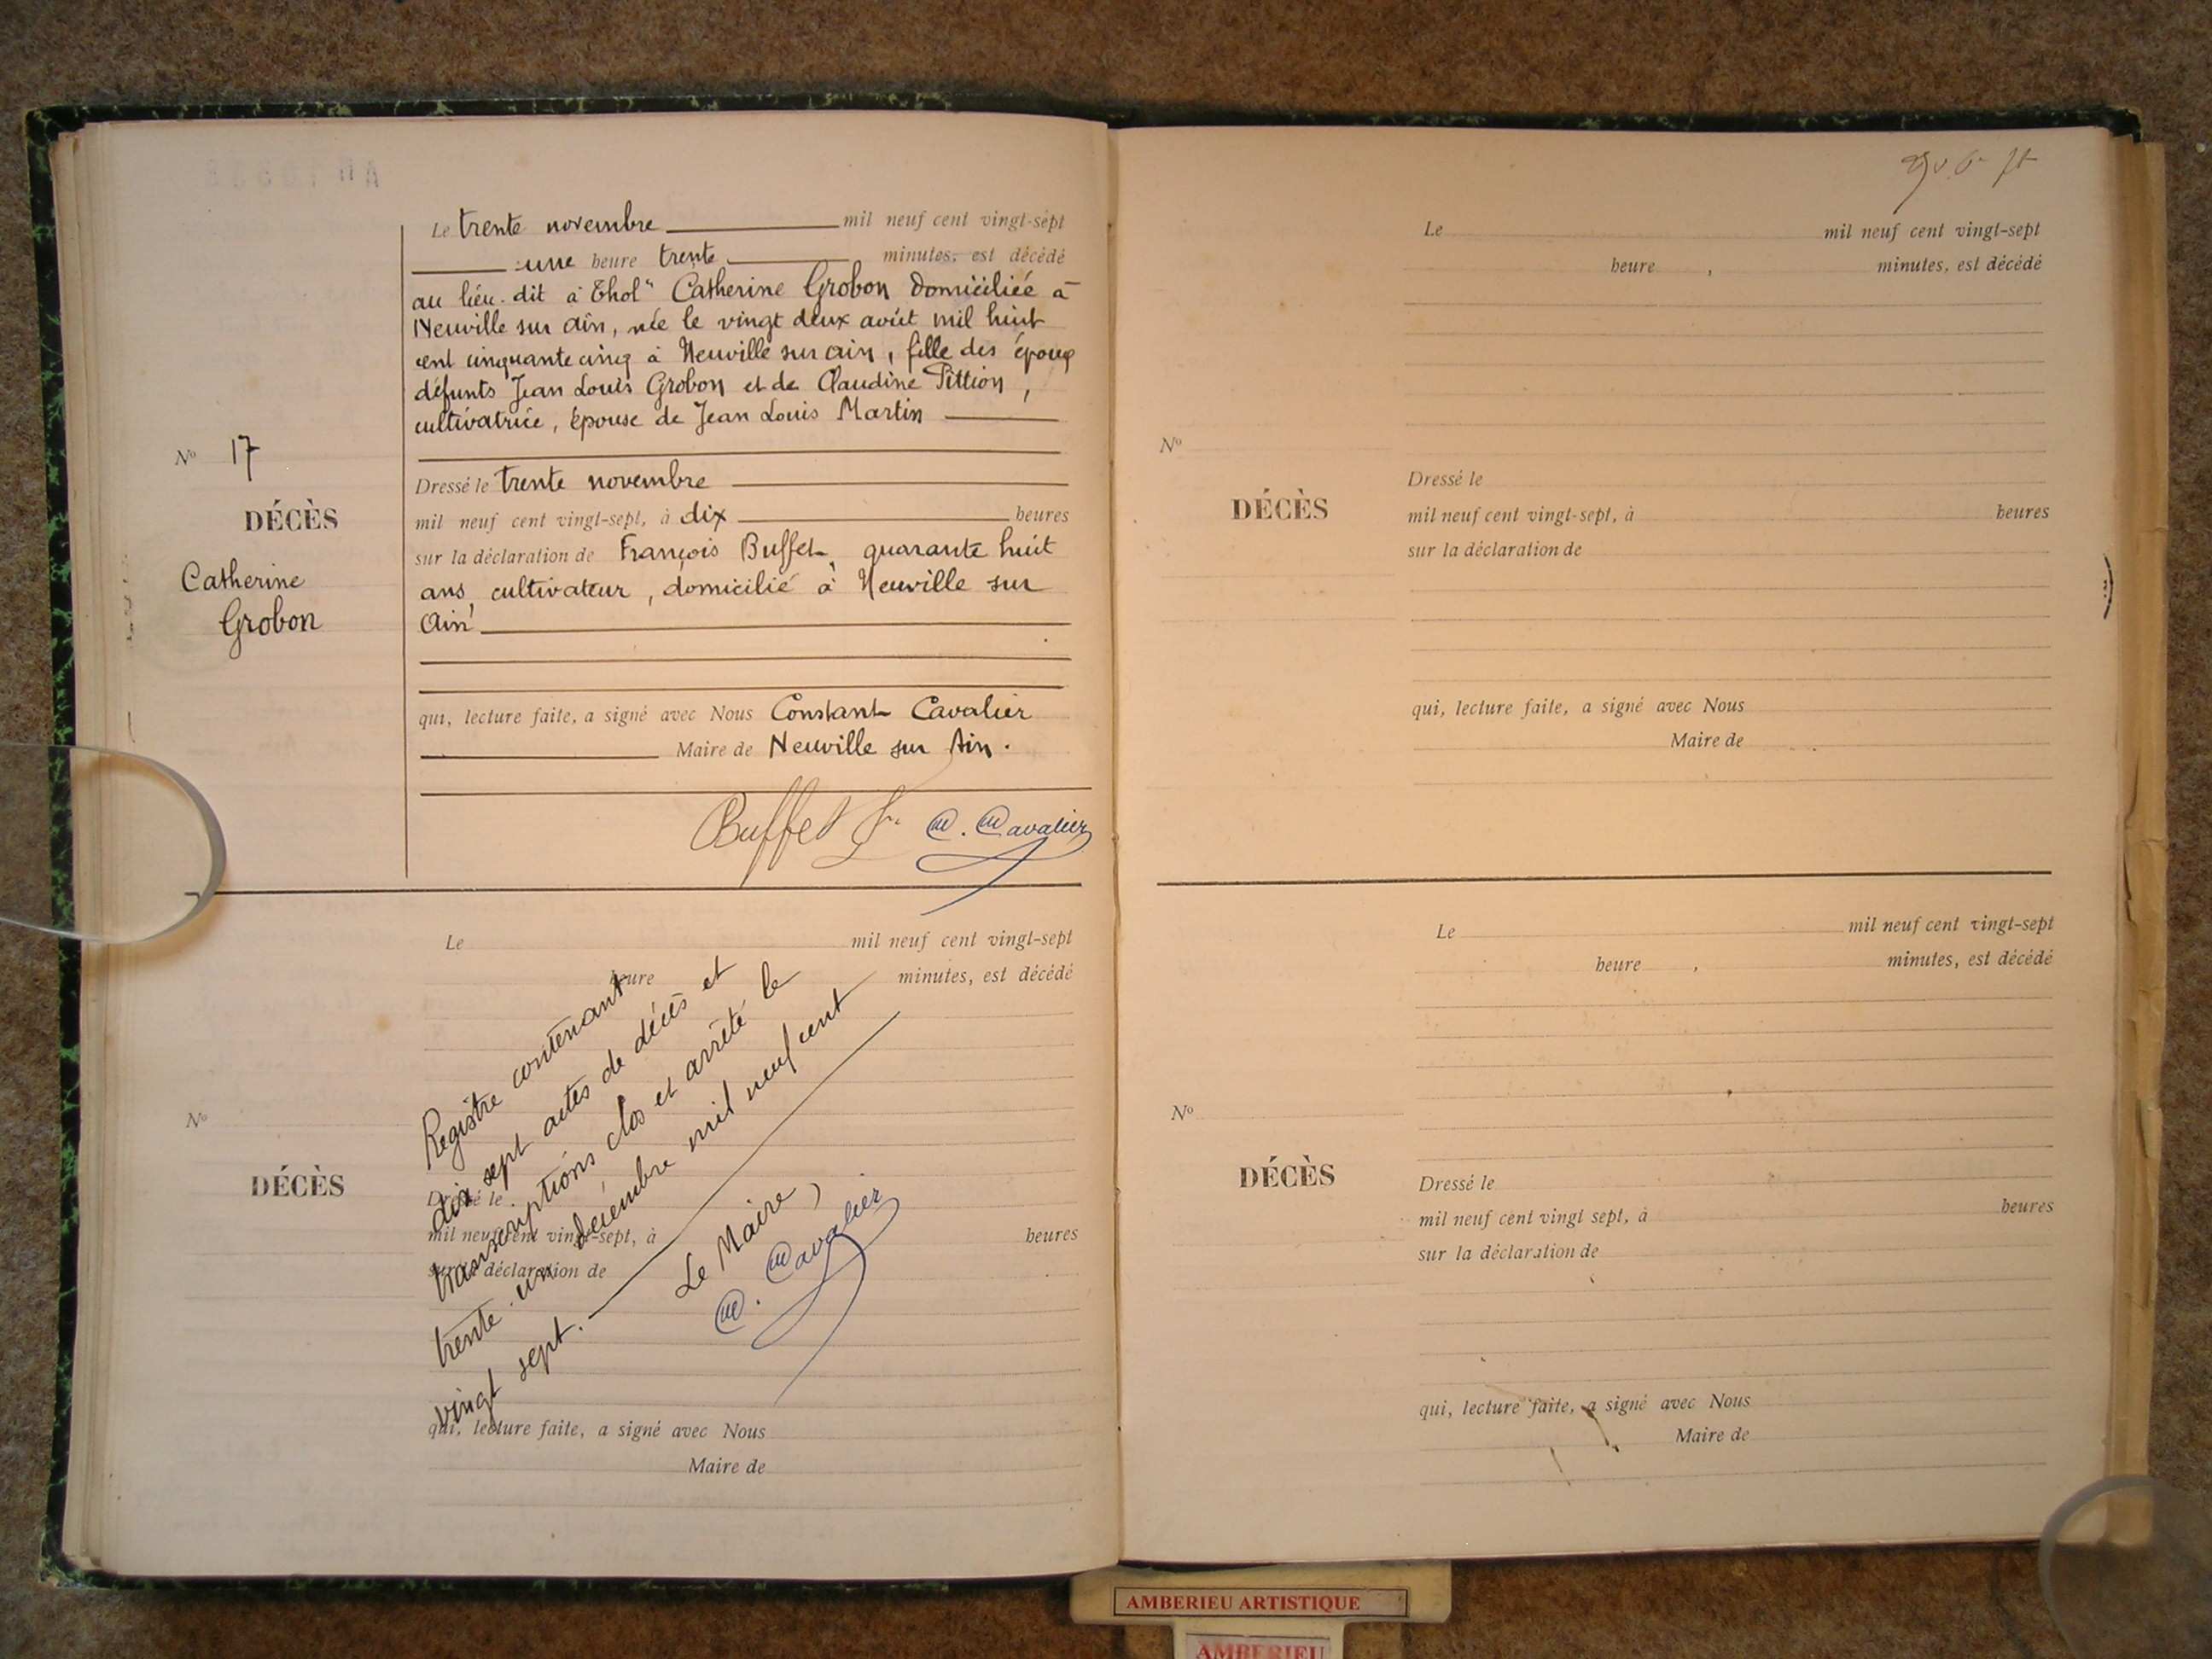 Le trente novembre mil neuf cent vingt-sept
une heure trente minutes, est décédé
au lieu-dit à Thol" Catherine Grobon domiciliée à
Neuville sur Ain, née le vingt deux août mil huit
cent cinquante cinq à Neuville sur ain, fille des époux
défunts Jean Louis Grobon et de Claudine Pittion,
cultivatrice, épouse de Jean Louis Martin
Nº 17
DÉCÈS
Catherine
Grobon
Dressé le trente novembre
mil neuf cent vingt-sept, à dix heures
sur la déclaration de François Buffet, quarante huit
ans, cultivateur, domicilié à Neuville sur
Ain
qui, lecture faite, a signé avec Nous Constant Cavalier
Maire de Neuville sur Ain.
Buffet f. C. Cavalier
Le mil neuf cent vingt-sept
heure minutes, est décédé
Nº
DÉCÈS
Dressé le
mil neuf cent vingt-sept, à heures
sur la déclaration de
qui, lecture faite, a signé avec Nous
Maire de
Registre contenant
dix sept actes de décès et
transcriptions clos et arrêté le
trente-un décembre mil neuf cent
vingt sept.
Le Maire,
C. Cavalier
Le mil neuf cent vingt-sept
heure , minutes, est décédé
Nº
DÉCÈS
Dressé le
mil neuf cent vingt-sept, à heures
sur la déclaration de
qui, lecture faite, a signé avec Nous
Maire de
Le mil neuf cent vingt-sept
heure , minutes, est décédé
Nº
DÉCÈS
Dressé le
mil neuf cent vingt sept, à heures
sur la déclaration de
qui, lecture faite, a signé avec Nous
Maire de
AMBERIEU ARTISTIQUE
AMBERIEU